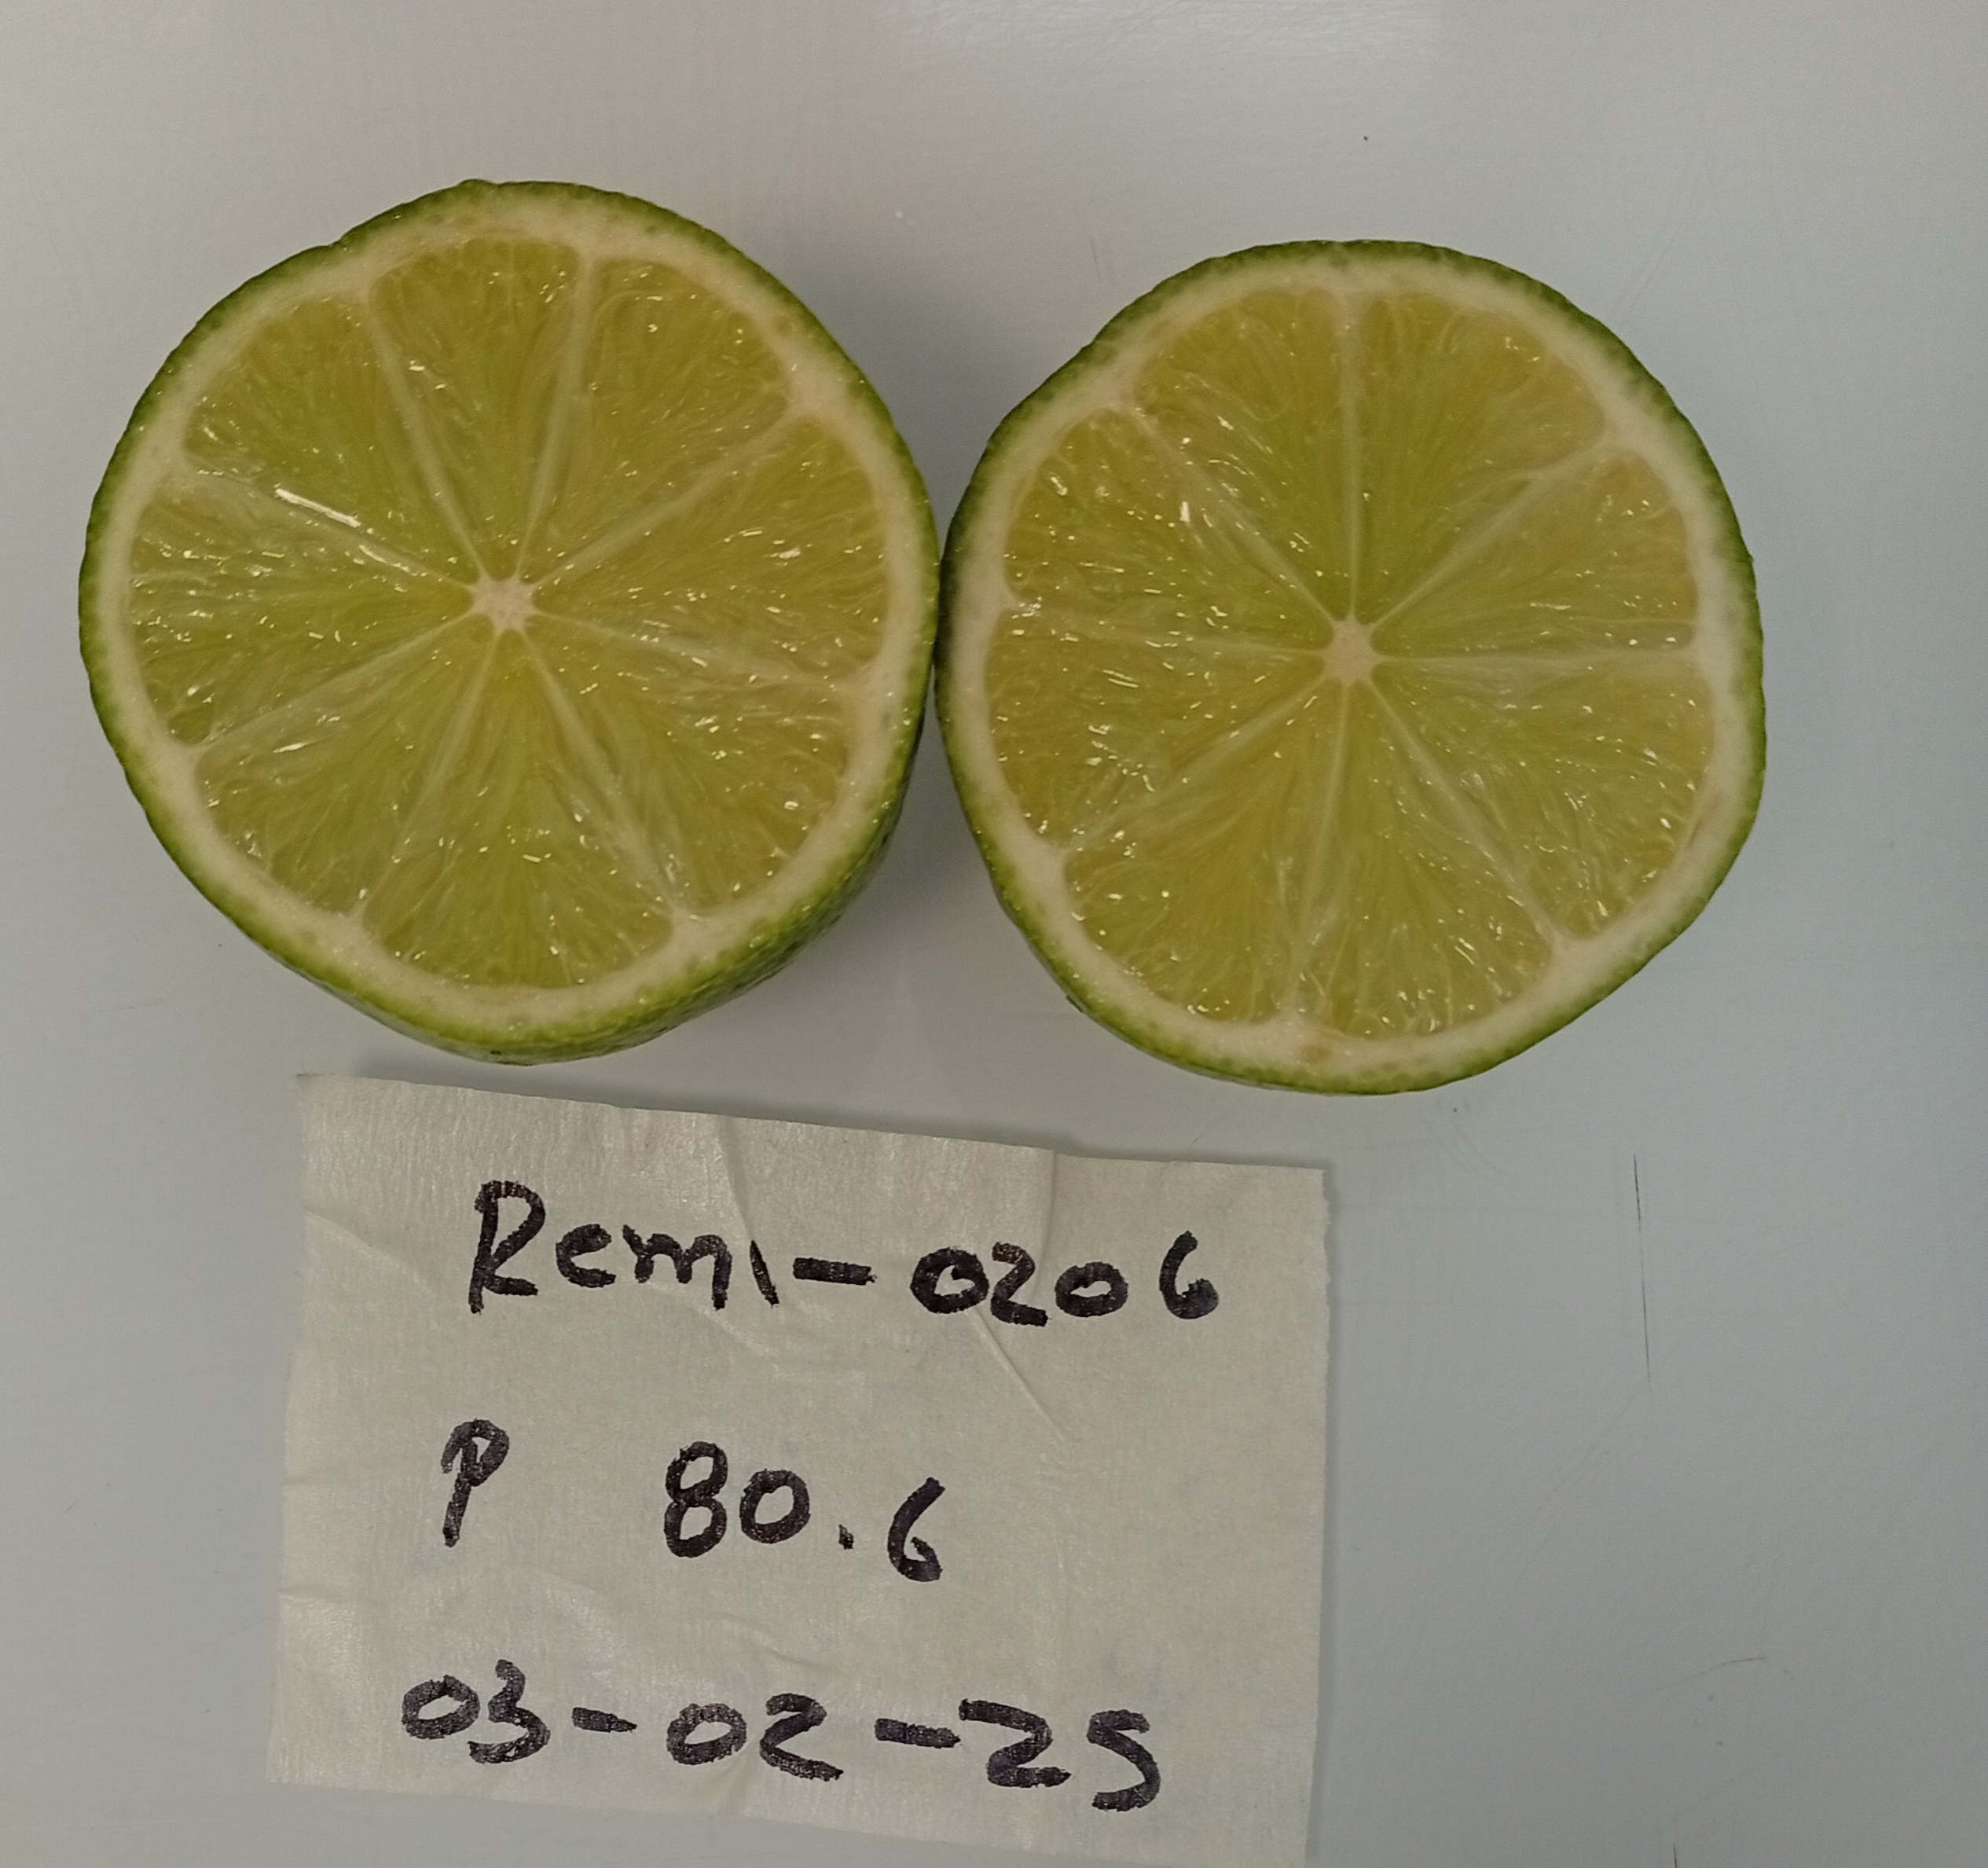 Remi-0206
P 80.6
03-02-25